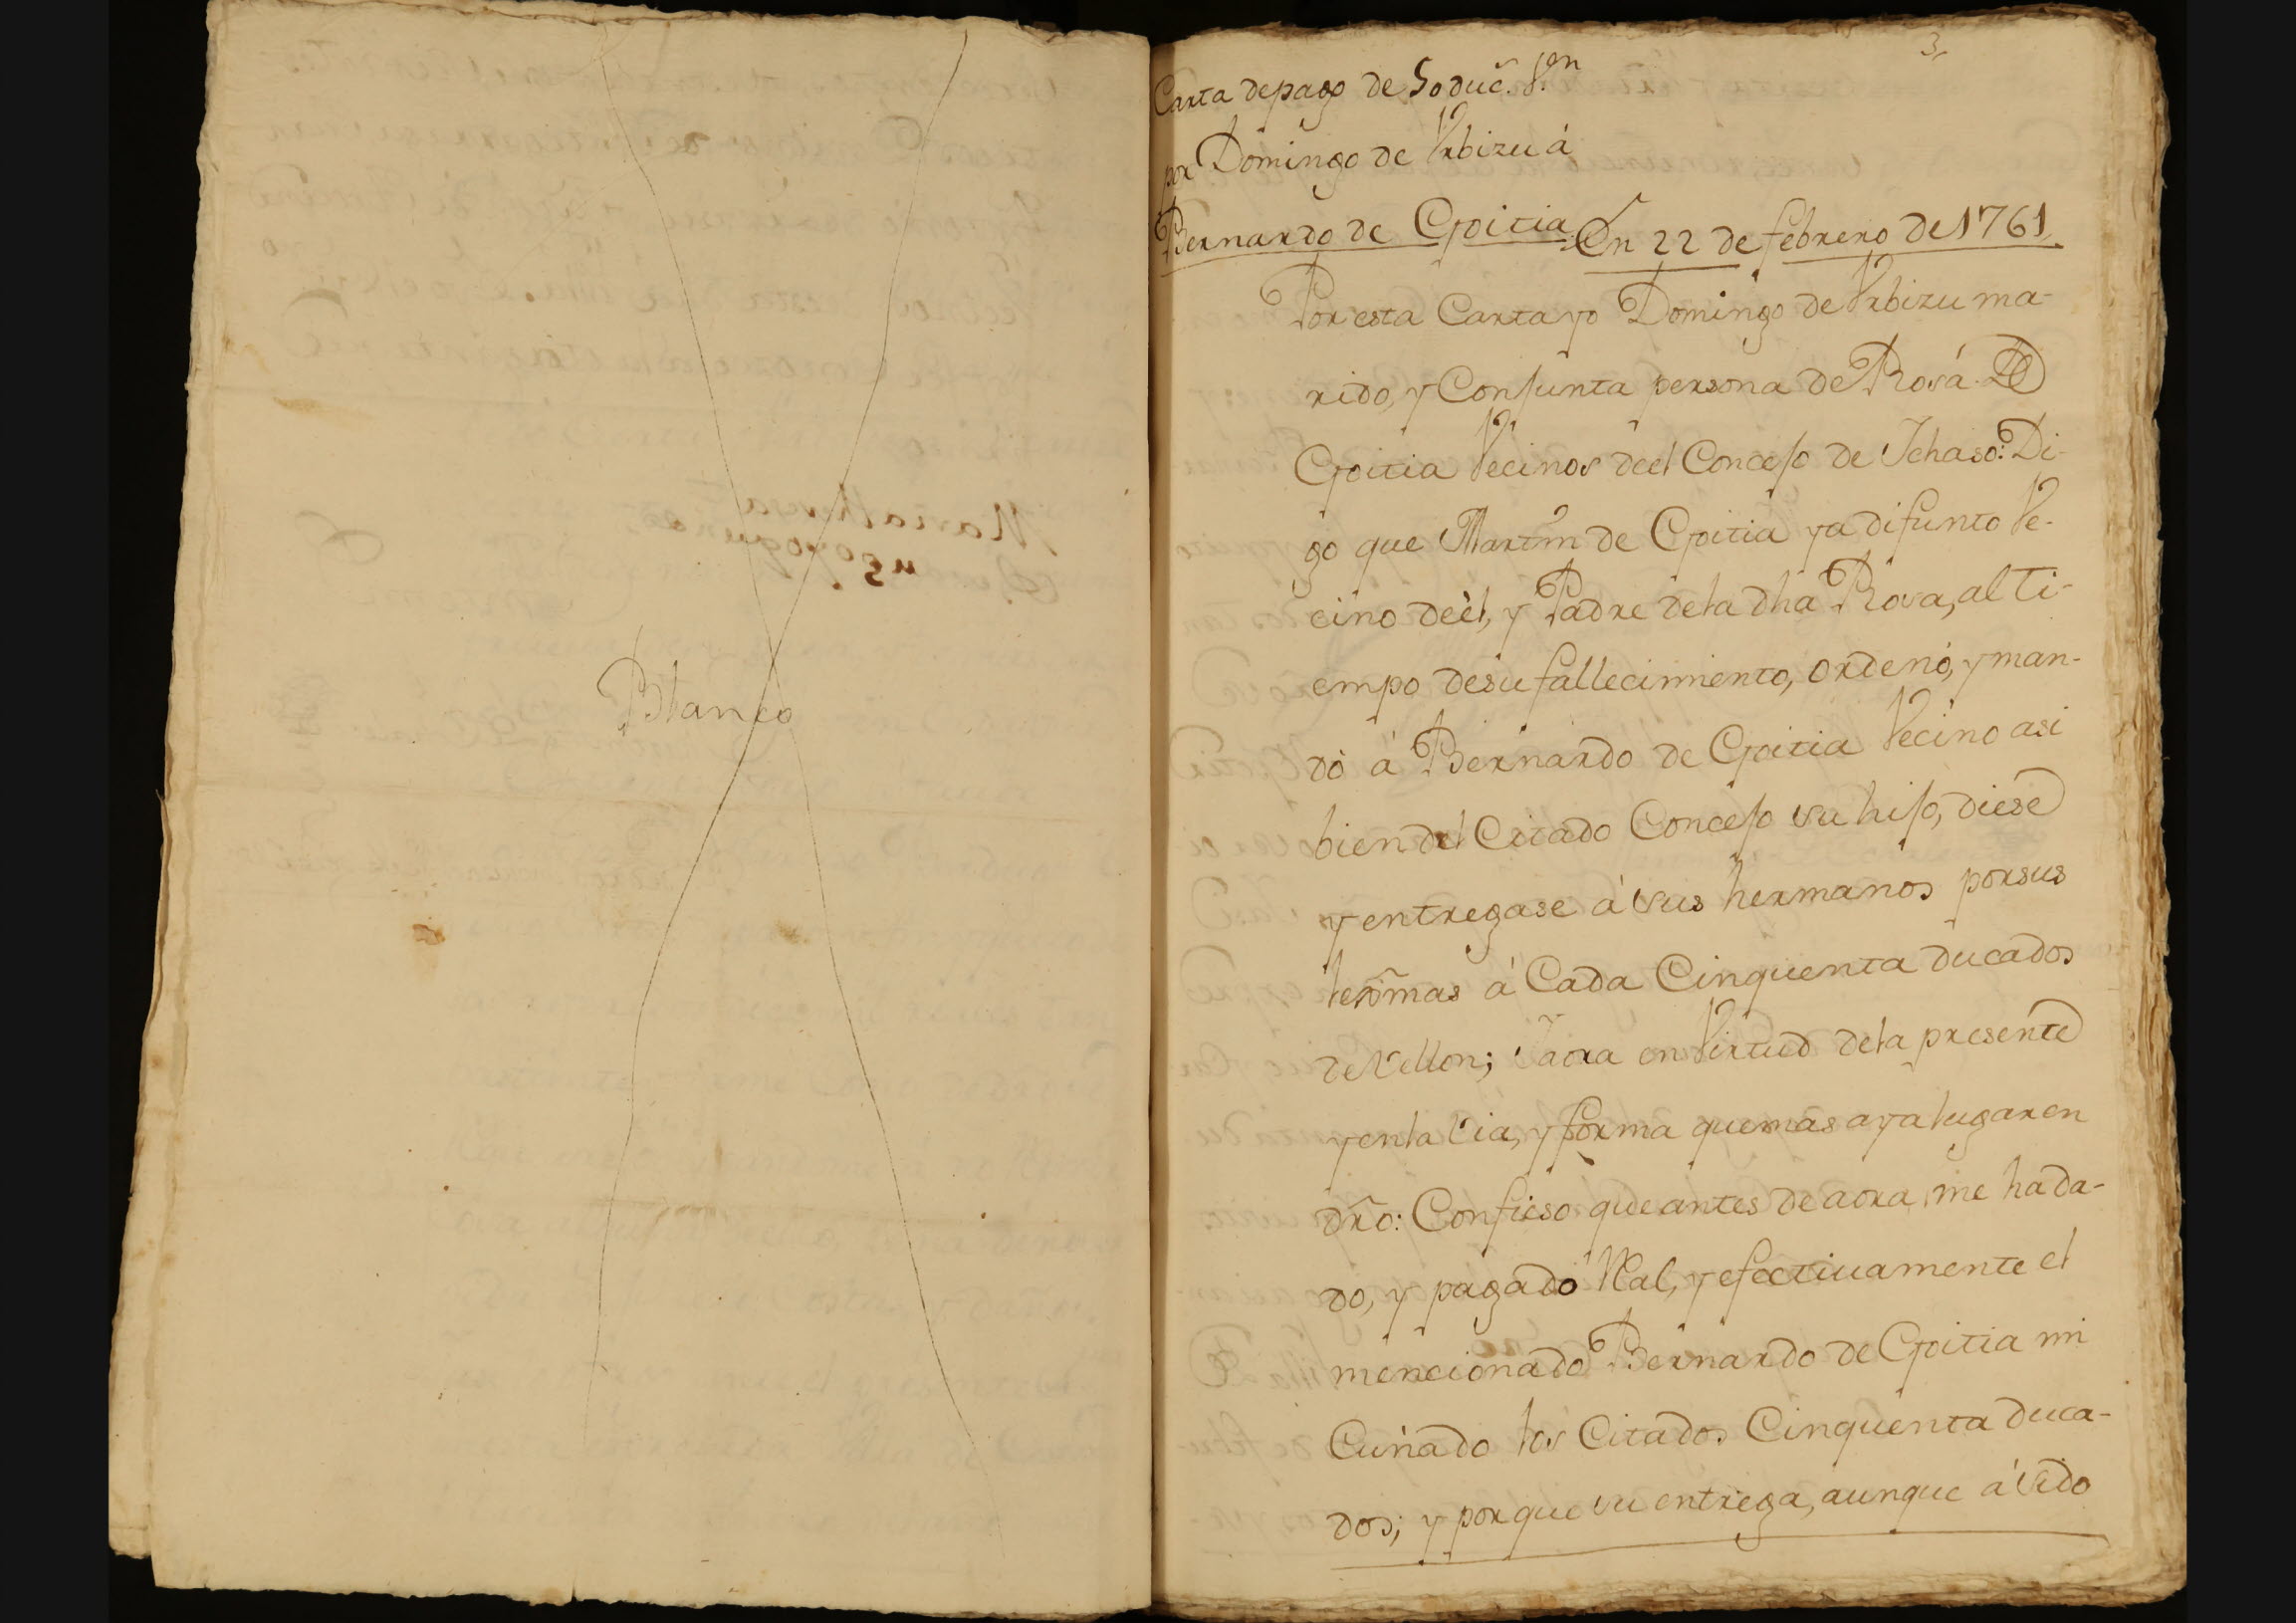 Blanco
3,
Carta de pago de 50 duc.s
por Domingo de Vrbizu á
Bernardo de Epitia. En 22 de febrero de 1761
Por esta Carta yo Domingo de Vrbizu ma-
rido, y Conjunta persona de Rosa de
Epitia Vecinos deel Concejo de Ichaso: Di-
go que Martin de Epitia ya difunto Ve-
cino deèl, y Padre dela dha Rosa, al ti-
empo desu fallecimiento, ordenó, y man-
dó á Bernardo de Epitia Vecino asi
bien del Citado Concejo su hijo, diese
y entregase á sus hermanos por sus
lexmas á Cada Cinquenta ducados
de Vellon; aora en Virtud dela presente
y enla Via, y forma quemas aya lugar en
dro: Confieso que antes de aora me hada-
do, y pagado Real, y efectiuamente el
mencionado Bernardo de Epitia mi
Cuñado los Citados Cinquenta duca-
dos; y porque su entrega, aunque á sido